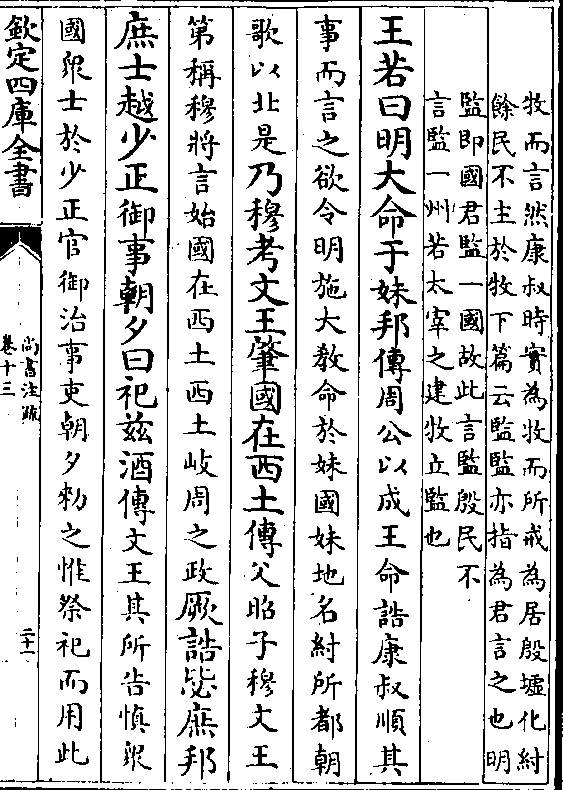 牧而言然康叔時實為牧而所戒為居殷墟化紂
餘民不主於牧下篇云監監亦指為君言之也明
監即國君監一國故此言監殷民不
言監一州若太宰之建牧立監也
王若曰明大命于妹邦傳周公以成王命誥康叔順其
事而言之欲令明施大教命於妹國妹地名紂所都朝
歌以北是乃穆考文王肇國在西土傳父昭子穆文王
第稱穆將言始國在西土西土岐周之政厥誥毖庶邦
庶士越少正御事朝夕曰祀兹酒傳文王其所告慎眾
國眾士於少正官御治事吏朝夕勑之惟祭祀而用此
欽定四庫全書
尚書注疏
卷十三
二十一